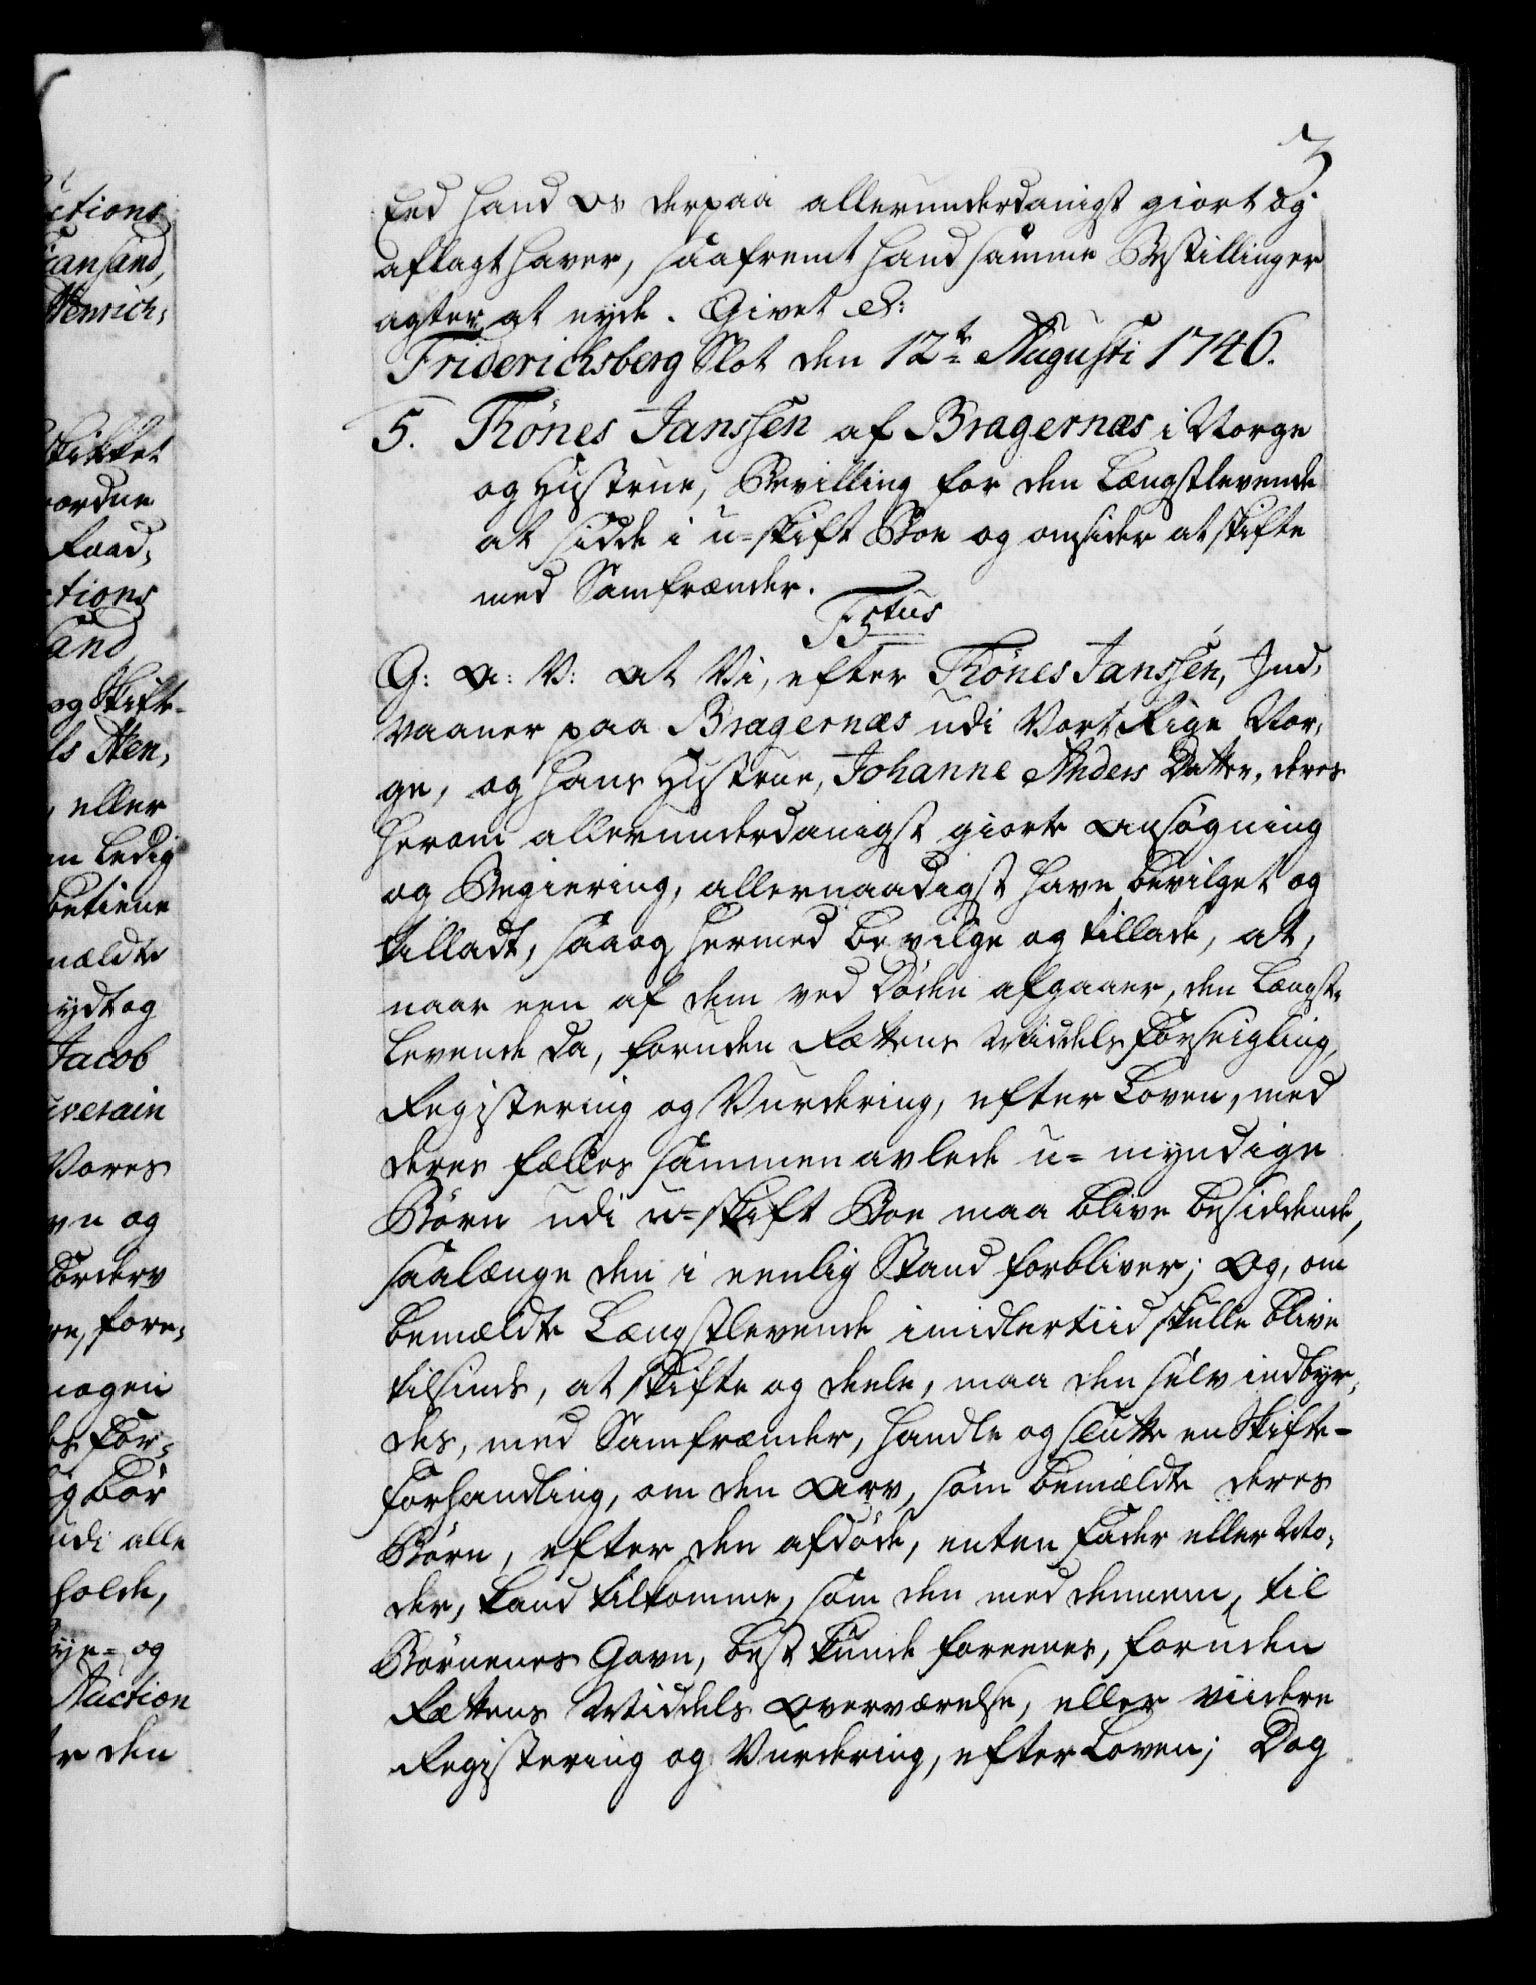 3
Eed hand Os derpaa allerunderdanigst giort og
aflagt haver, saafremt hand samme Bestillinger
agter at nyde. Givet &:
Friderichsberg Slot den 12te Augusti 1746.
5. Thönes Janssen af Bragernæs i Norge
og Hustrue, Bevilling for den Længstlevende
at sidde i u=skift Boe og omsider at skifte
med Samfrænder.
F5tus
G: A: V: At Vi, efter Thönes Janssen, Ind,
vaaner paa Bragernæs udi Vort Rige Nor,
ge, og hans Hustrue, Johanne Anders Datter, deres
herom allerunderdanigst giorte Ansøgning
og Begiering, allernaadigst have bevilget og
tilladt, saa og hermed bevilge og tillade, at,
naar een af dem ved Døden afgaaer, den Længst,
levende da, foruden Rettens Middels Forseigling,
Registering og Vurdering, efter Loven, med
deres fælles sammen avlede u=myndige
Børn udi u=skift Boe maa blive besiddende,
saalænge den i eenlig Stand forbliver; Og, om
bemældte Længstlevende imidlertiid skulle blive
tilsinds, at skifte og deele, maa den selv indbyr,
des, med Samfrænder, handle og slutte en Skifte-
forhandling, om den Arv, som bemældte deres
Børn, efter den afdøde, enten Fader eller Mo,
der, kand tilkomme, som den med dennem, til
Børnenes Gavn, best kunde foreenes, foruden
Rettens Middels Overværelse, eller viidere
Registering og Vurdering, efter Loven; Dog
ctions
iansand,
Henrich,
skikket
ordne
raad,
ctions
and
og Skifte-
ls Hen,
, eller
en ledig
betiene
mældte
ydt og
Jacob
uverain
Vores
vn og
fordærv
re, fore,
nogen
es For-
og bør
udi alle
holde,
bye= og
Auction
r den